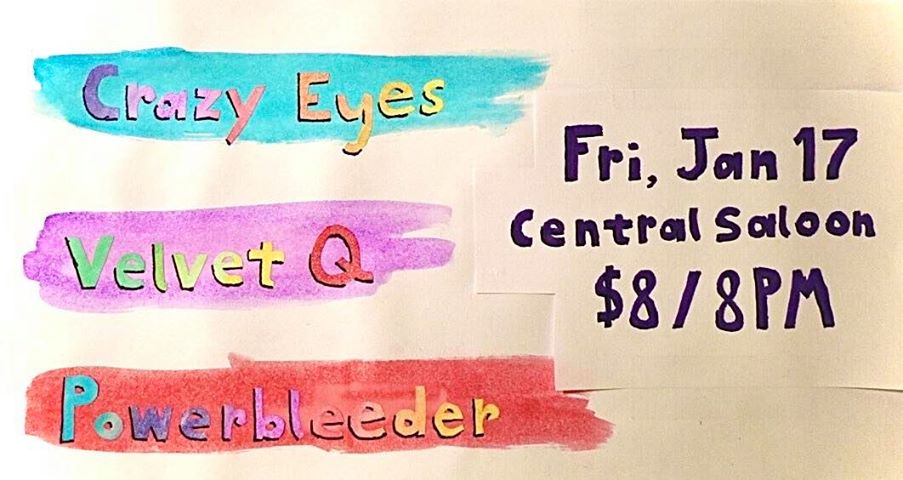 Crazy Eyes
Velvet Q
Powerbleeder
Fri, Jan 17
Central Saloon
$8/8PM